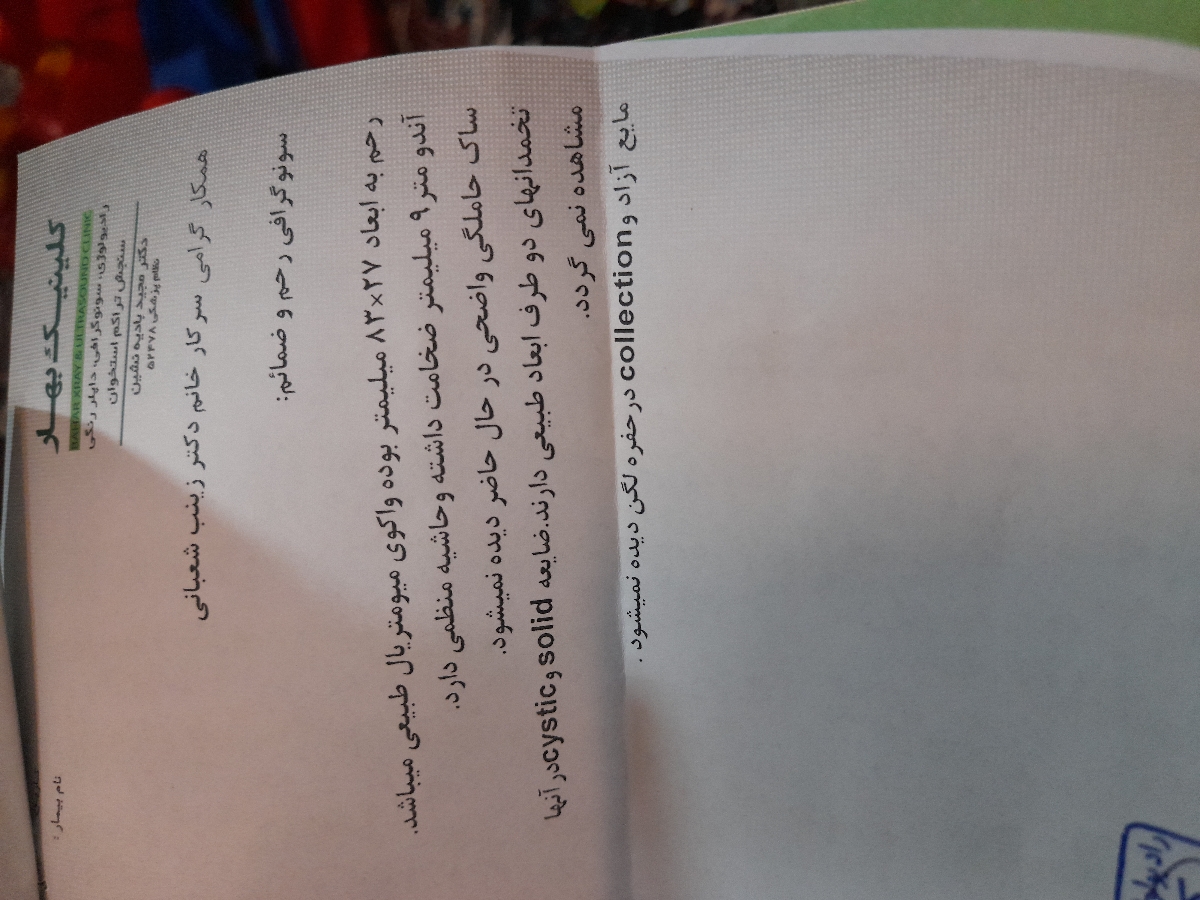 کلینیک بهار
BAHAR XRAY & ULTRASOUND CLINIC
رادیولوژی، سونوگرافی، داپلر رنگی
سنجش تراکم استخوان
دکتر مجید بادیه نشین
نظام پزشکی ۵۲۴۷۸
نام بیمار :
همکار گرامی سرکار خانم دکتر زینب شعبانی
سونوگرافی رحم و ضمائم:
رحم به ابعاد ۲۷×۸۳ میلیمتر بوده واکوی میومتریال طبیعی میباشد.
آندو متر ۹ میلیمتر ضخامت داشته وحاشیه منظمی دارد.
ساک حاملگی واضحی در حال حاضر دیده نمیشود.
تخمدانهای دو طرف ابعاد طبیعی دارند.ضایعه solid وcysticدر آنها
مشاهده نمی گردد.
مایع آزاد وcollection درحفره لگن دیده نمیشود .